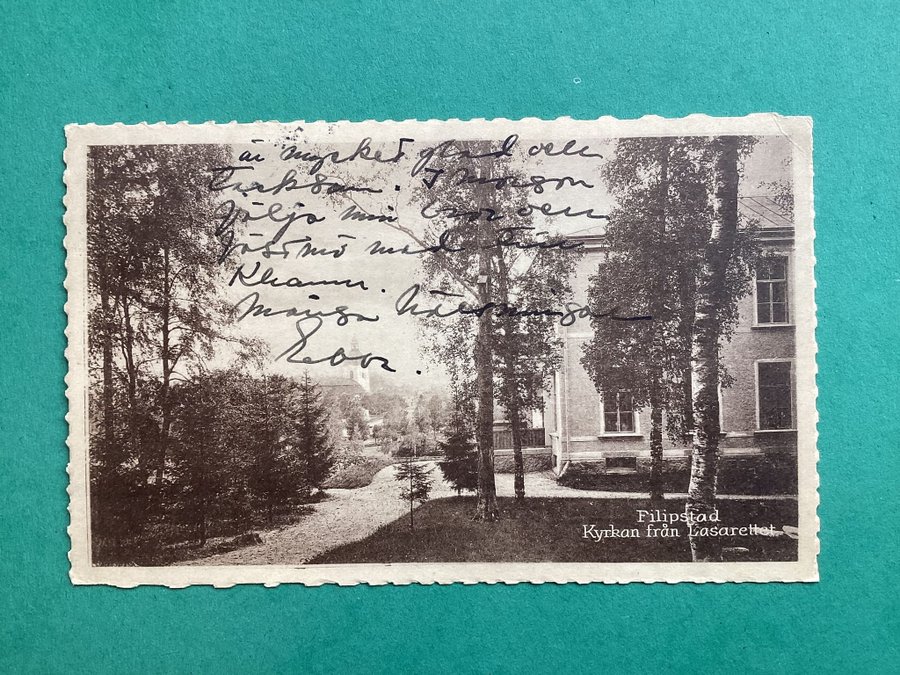 är mycket glad och
tacksam. I morgon
följa min bror och
med till
Khamn.
Många hälsningar
Filipstad
Kyrkan från Lasarettet.